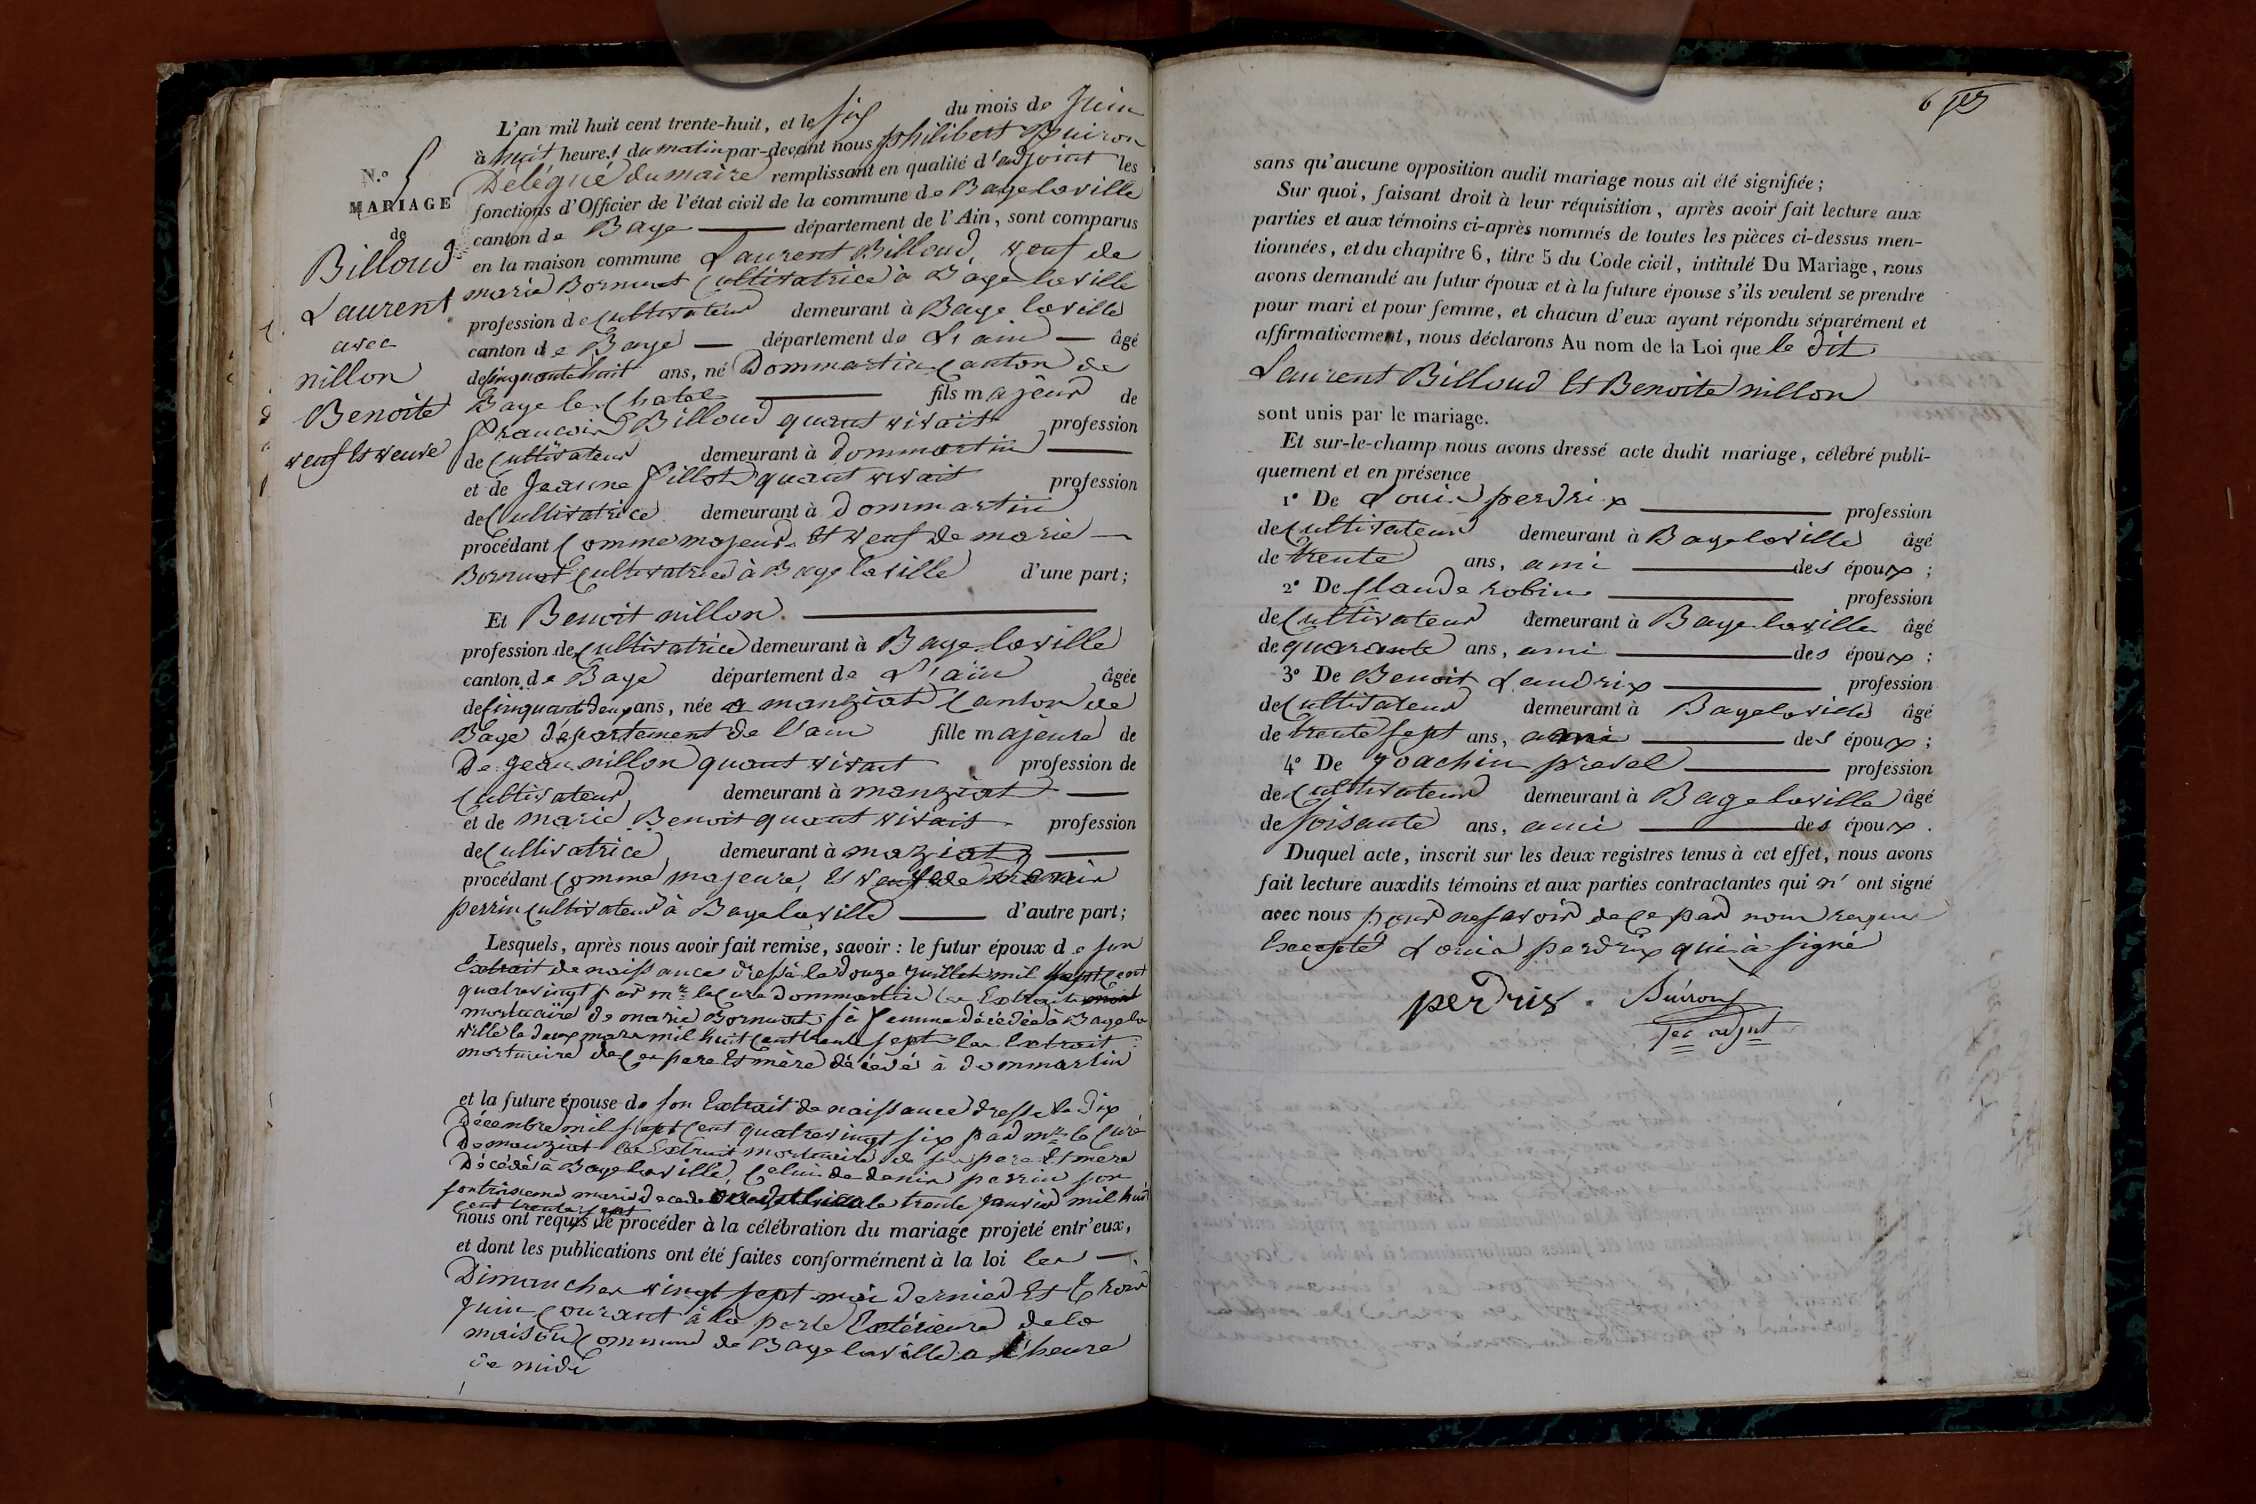 N.º 5
MARIAGE
de
Billoud
Laurent
avec
nillon
Benoite
veuf et veuve
L'an mil huit cent trente-huit, et le six du mois de Juin
à huit heures du matin par-devant nous philibert Buiron
Délégué du maire remplissant en qualité d'adjoint les
fonctions d'Officier de l'état civil de la commune de Bage laville
canton de Bage département de l'Ain, sont comparus
en la maison commune Laurent Billoud, veuf de
marie Bornuat Cultivatrice à Bage laville
profession de Cultivateur demeurant à Bage laville
canton de Bage département de L'ain âgé
de Cinquante huit ans, né Dommartin Canton de
Bage le Chatel fils majeur de
francois Billoud quant vivait profession
de Cultivateur demeurant à Dommartin
et de Jeanne fillot quant vivait profession
de Cultivatrice demeurant à dommartin
procédant Comme majeur et veuf de marie
Bornuat Cultivatrice à Bage laville d'une part;
Et Benoit nillon
profession de Cultivatrice demeurant à Bage laville
canton de Bage département de L'ain âgée
de Cinquante deux ans, née a manziat Canton de
Bage département de l'ain fille majeure de
De jean nillon quant vivait profession de
Cultivateur demeurant à manziat
et de marie Benoit quant vivait profession
de Cultivatrice demeurant à maziat
procédant Comme majeure, et veuve de denis
perrin Cultivateur à Bage laville d'autre part;
Lesquels, après nous avoir fait remise, savoir : le futur époux de son
Extrait de naissance dressé le douze Juillet mil sept Cent
quatrevingt par mr le Cure Dommartin les Extraits
mortuaire de marie Bornuat sa femme décédée à Bage la
ville le deux mars mil huit Cent trente sept les Extrait
mortuaire de Ces pere et mère décédé à dommartin
et la future épouse de son Extrait de naissance dresse le Dix
Décembre mil sept Cent quatrevingt six par mr le Curé
De manziat les Extrait mortuaire de ses pere et mere
Décédés à Bage laville, Celui de denis perrin son
troisieme marie decede le trente Janvier mil huit
Cent trente sept
nous ont requis de procéder à la célébration du mariage projeté entr'eux,
et dont les publications ont été faites conformément à la loi les
Dimanches vingt sept mai dernier et trois
Juin Courant à la porte Extérieure de la
maison Commune de Bage laville a l'heure
de midi
6
sans qu'aucune opposition audit mariage nous ait été signifiée;
Sur quoi, faisant droit à leur réquisition, après avoir fait lecture aux
parties et aux témoins ci-après nommés de toutes les pièces ci-dessus men-
tionnées, et du chapitre 6, titre 5 du Code civil, intitulé Du Mariage, nous
avons demandé au futur époux et à la future épouse s'ils veulent se prendre
pour mari et pour femme, et chacun d'eux ayant répondu séparément et
affirmativement, nous déclarons Au nom de la Loi que le dit
Laurent Billoud Et Benoite nillon
sont unis par le mariage.
Et sur-le-champ nous avons dressé acte dudit mariage, célébré publi-
quement et en présence
1º De Louis perdrix profession
de Cultivateur demeurant à Bage laville âgé
de trente ans, ami des époux;
2º De Claude robin profession
de Cultivateur demeurant à Bage laville âgé
de quarante ans, ami des époux;
3º De Benoit Landrix profession
de Cultivateur demeurant à Bage laville âgé
de trente sept ans, ami des époux;
4º De Joachin prevel profession
de Cultivateur demeurant à Bage laville âgé
de soisante ans, ami des époux.
Duquel acte, inscrit sur les deux registres tenus à cet effet, nous avons
fait lecture auxdits témoins et aux parties contractantes qui n'ont signé
avec nous pour ne savoir de ce par nous requis
Excepté Louis perdrix qui à signé
perdrix. Buiron
adjnt